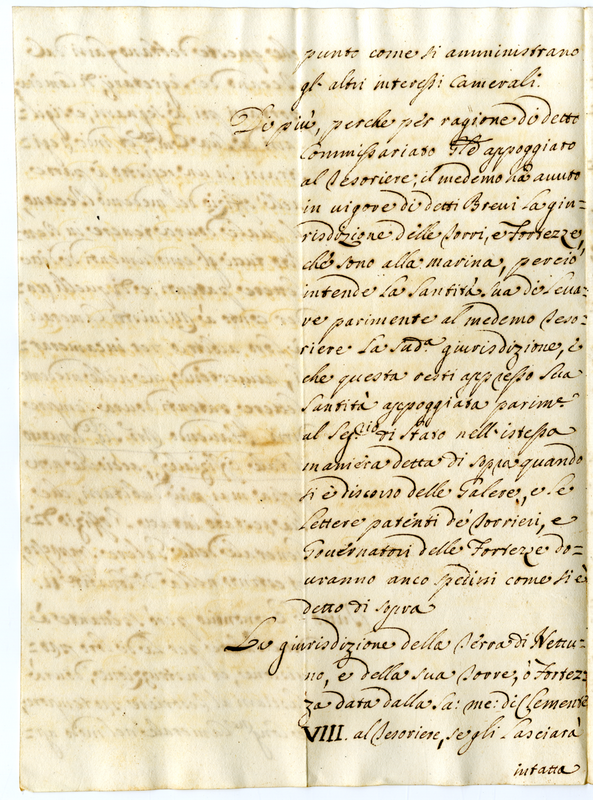 punto come si amministrano
gl' altri interessi Camerali.
Di più, perche per ragione di detto
Commissariato appoggiato
al Tesoriere, il medemo hà avuto
in vigore di detti Brevi la giu=
risdizione delle Torri, e Fortezze,
che sono alla marina, perciò
intende la Santità Sua di leva=
re parimente al medemo Teso=
riere la sud.ª giurisdizione, e
che questa resti appresso Sua
Santità appoggiata parim.te
al Seg.rio di Stato nell'istessa
maniera detta di sopra quando
si è discorso delle Galere, e le
lettere patenti de' Torrieri, e
Governatori delle Fortezze do=
vranno anco spedirsi come si è
detto di sopra
La giurisdizione della Terra di Nettu=
no, e della sua Torre, ò Fortez=
za data dalla sa: me: di Clemente
VIII. al Tesoriere, se gli lasciarà
intatta